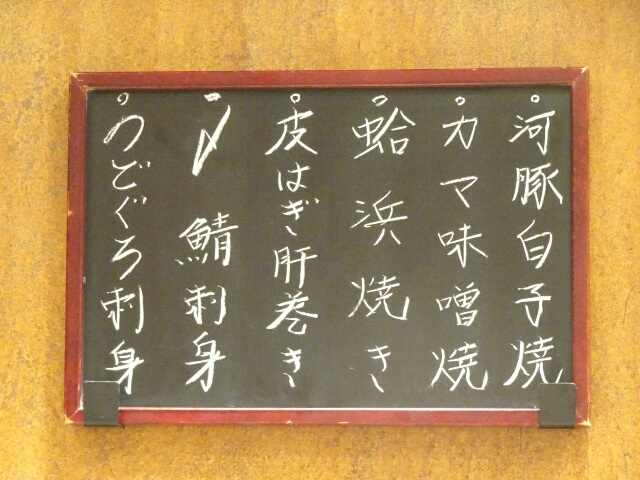 河豚白子焼
カマ味噌焼
蛤浜焼き
皮はぎ肝巻き
〆鯖刺身
のどぐろ刺身